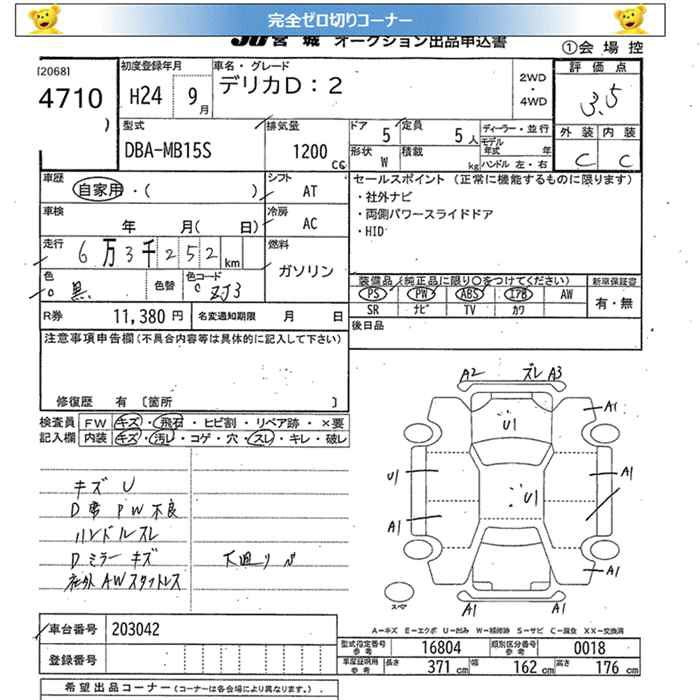 完全ゼロ切りコーナー
JU宮城 オークション出品申込書
①会場控
[2068]
4710
)
初度登録年月
H24 9月
車名・グレード
デリカD:2
2WD
・
4WD
評価点
3.5
型式
DBA-MB15S
排気量
1200 cc
ドア 5
定員 5人
形状 W
積載 kg
ディーラー・並行
モデル年式 年
ハンドル 左・右
外装 内装
C C
車歴
自家用・( )
シフト
AT
セールスポイント (正常に機能するものに限ります)
・社外ナビ
・両側パワースライドドア
・HID
車検
年 月( 日)
冷房
AC
走行
6万3千252km
燃料
ガソリン
色
黒
色替
色コード
ZJ3
装備品(純正品に限り○をつけてください)
PS PW ABS エアB AW
SR ナビ TV カワ
新車保証書
有・無
R券 11,380円
名変通知期限 月 日
後日品
注意事項申告欄(不具合内容等は具体的に記入して下さい)
修復歴 有 [箇所 ]
検査員記入欄
FW キズ・飛石・ヒビ割・リペア跡・×要
内装 キズ・汚レ・コゲ・穴・スレ・キレ・破レ
キズ U
D席 PW 不良
ハンドルスレ
Dミラーキズ
社外AWスタッドレス
下廻りサビ
A2 ズレ A3
A1
U1
U1 U1 A1
A1
A1
A1 A1
スペア
A-キズ E-エクボ U-凹み W-補修跡 S-サビ C-腐食 XX-交換済
車台番号 203042
登録番号
型式指定番号 参考 16804
類別区分番号 参考 0018
車庫証明用 参考 長さ 371cm 幅 162cm 高さ 176cm
希望出品コーナー(コーナーは各会場により異なります。)